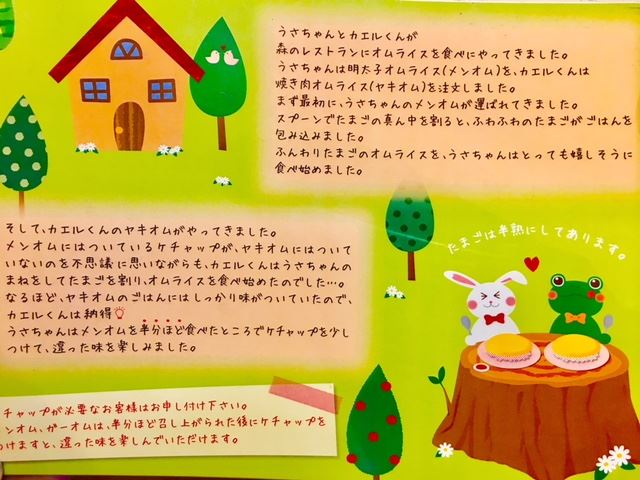 うさちゃんとカエルくんが
森のレストランにオムライスを食べにやってきました。
うさちゃんは明太子オムライス(メンオム)を、カエルくんは
焼き肉オムライス(ヤキオム)を注文しました。
まず最初に、うさちゃんのメンオムが運ばれてきました。
スプーンでたまごの真ん中を割ると、ふわふわのたまごがごはんを
包み込みました。
ふんわりたまごのオムライスを、うさちゃんはとっても嬉しそうに
食べ始めました。
そして、カエルくんのヤキオムがやってきました。
メンオムにはついているケチャップが、ヤキオムにはついて
いないのを不思議に思いながらも、カエルくんはうさちゃんの
まねをしてたまごを割り、オムライスを食べ始めたのでした…。
なるほど、ヤキオムのごはんにはしっかり味がついていたので、
カエルくんは納得
うさちゃんはメンオムを半分ほど食べたところでケチャップを少し
つけて、違った味を楽しみました。
たまごは半熟にしてあります。
チャップが必要なお客様はお申し付け下さい。
ンオム、ガーオムは、半分ほど召し上がられた後にケチャップを
つけますと、違った味を楽しんでいただけます。